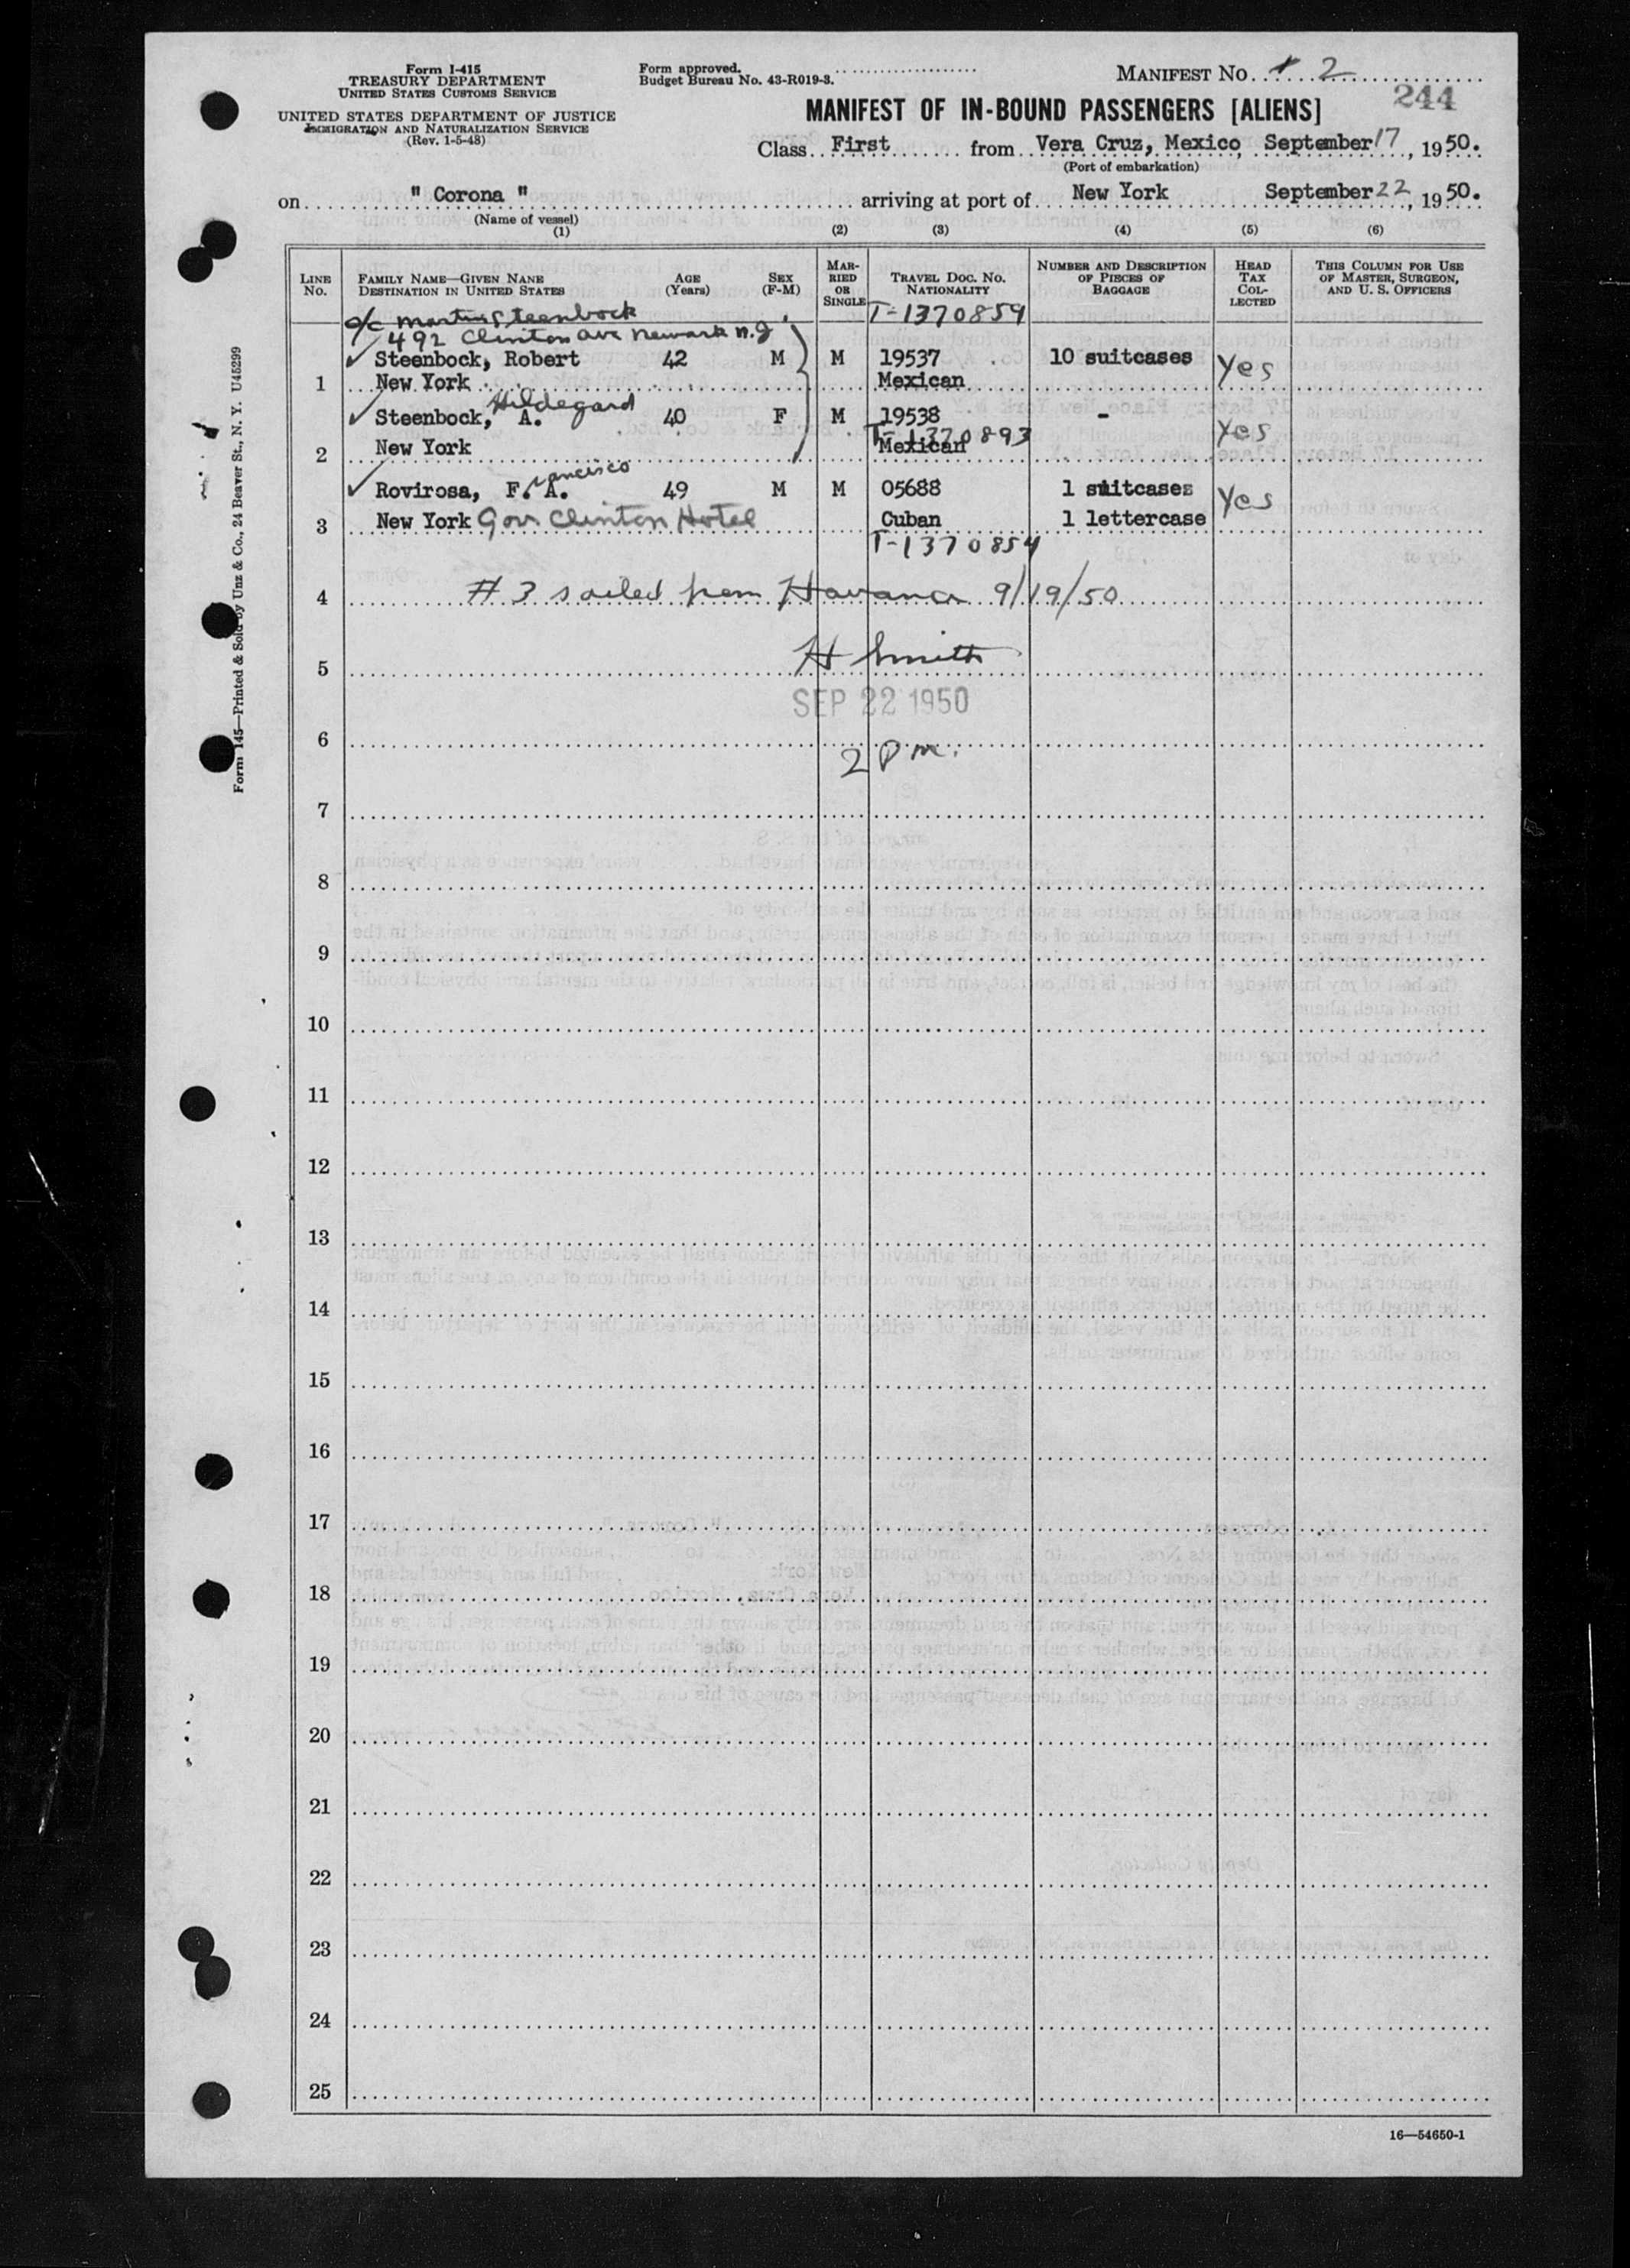 Form I-415
TREASURY DEPARTMENT
UNITED STATES CUSTOMS SERVICE
UNITED STATES DEPARTMENT OF JUSTICE
IMMIGRATION AND NATURALIZATION SERVICE
(Rev. 1-5-48)
Form approved.
Budget Bureau No. 43-R019-3.
MANIFEST No. 2
244
MANIFEST OF IN-BOUND PASSENGERS [ALIENS]
Class First from Vera Cruz, Mexico, September 17, 1950.
(Port of embarkation)
on " Corona " arriving at port of New York September 22, 1950.
(Name of vessel)
(1) (2) (3) (4) (5) (6)
LINE No. FAMILY NAME—GIVEN NANE DESTINATION IN UNITED STATES AGE (Years) SEX (F-M) MARRIED OR SINGLE TRAVEL DOC. NO. NATIONALITY NUMBER AND DESCRIPTION OF PIECES OF BAGGAGE HEAD TAX COLLECTED THIS COLUMN FOR USE OF MASTER, SURGEON, AND U. S. OFFICERS
c/o Martin Steenbock T-1370859
492 Clinton Ave Newark N.J.
Steenbock, Robert 42 M M 19537 10 suitcases Yes
1 New York Mexican
Hildegard
Steenbock, A. 40 F M 19538 - Yes
T-1370893
2 New York Mexican
Francisco
Rovirosa, F. A. 49 M M 05688 1 suitcases Yes
3 New York Gov Clinton Hotel Cuban 1 lettercase
T-1370854
4 # 3 sailed from Havana 9/19/50
5 H Smith
SEP 22 1950
6
2 P m.
7
8
9
10
11
12
13
14
15
16
17
18
19
20
21
22
23
24
25
16—54650-1
Form 145—Printed & Sold by Unz & Co., 24 Beaver St., N. Y. U45299